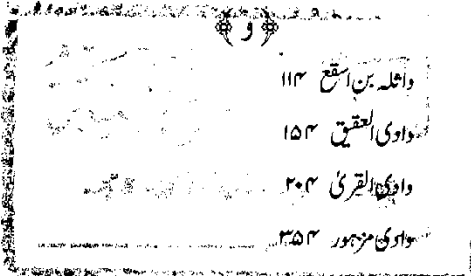 و
واثلہ بن اسقع ۱۱۴
وادی العقیق ۱۵۴
وادی القریٰ ۲۰۴
وادی مزہور ۳۵۴